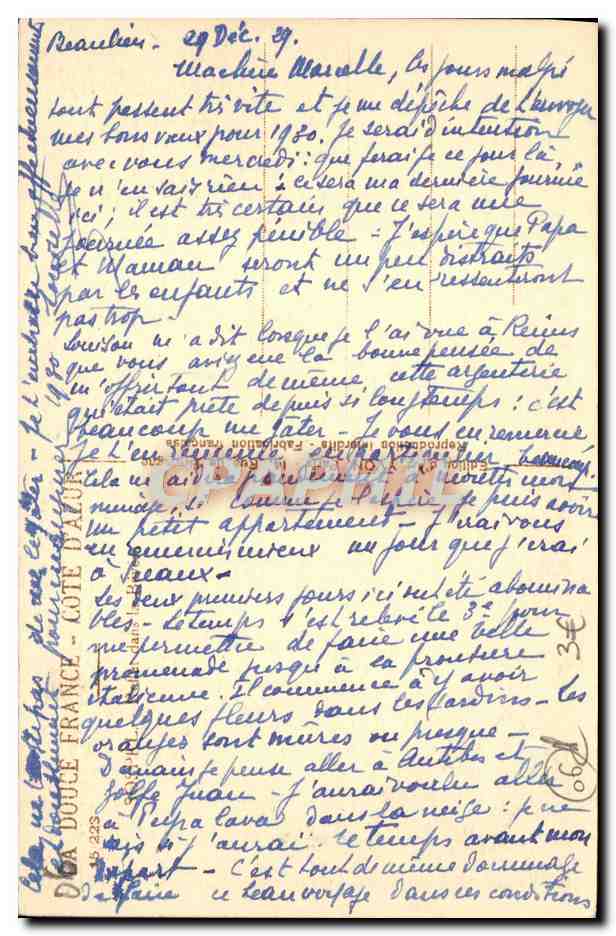 Beaulieu - 29 Déc. 29.
Machère Marcelle, les jours malgré
tout passent très vite et je me dépêche de t'envoyer
mes bons vœux pour 1930. Je serai d'intention
avec vous mercredi : que ferai je ce jour là,
je n'en sais rien : ce sera ma dernière journée
ici ; il est très certain que ce sera une
journée assez pénible - J'espère que Papa
et Maman seront un peu distraits
par les enfants et ne s'en ressentiront
pas trop -
Louison m'a dit lorsque je l'ai vue à Reims
que vous aviez eue la bonne pensée de
m'offrir tout de même cette argenterie
qui était prête depuis si longtemps : c'est
beaucoup me gâter - Je vous en remercie
Je t'en remercie en particulier beaucoup.
Cela m'aidera à monter mon
si comme je l'espère je puis avoir
un petit appartement - J'irai vous
en remercier mieux un jour que j'irai
à Sceaux -
Les deux premiers jours ici ont été abomina
bles - Le temps s'est relevé le 3e pour
me permettre de faire une belle
promenade jusqu'à la frontière
italienne. Il commence à y avoir
quelques fleurs dans les jardins - Les
oranges sont mûres ou presque -
Demain je pense aller à Antibes et
Golfe Juan - J'aurai voulu aller
à Peïra Cava dans la neige : je ne
sais si j'aurai le temps avant mon
départ - C'est tout de même dommage
de faire ce beau voyage dans ces conditions
Cela ne
pour
1930
Je t'embrasse bien affectueusement
LA DOUCE FRANCE - CÔTE D'AZUR
Editions d'Art YVON
Reproduction interdite - Fabrication française
CPAPHIL
3€
06